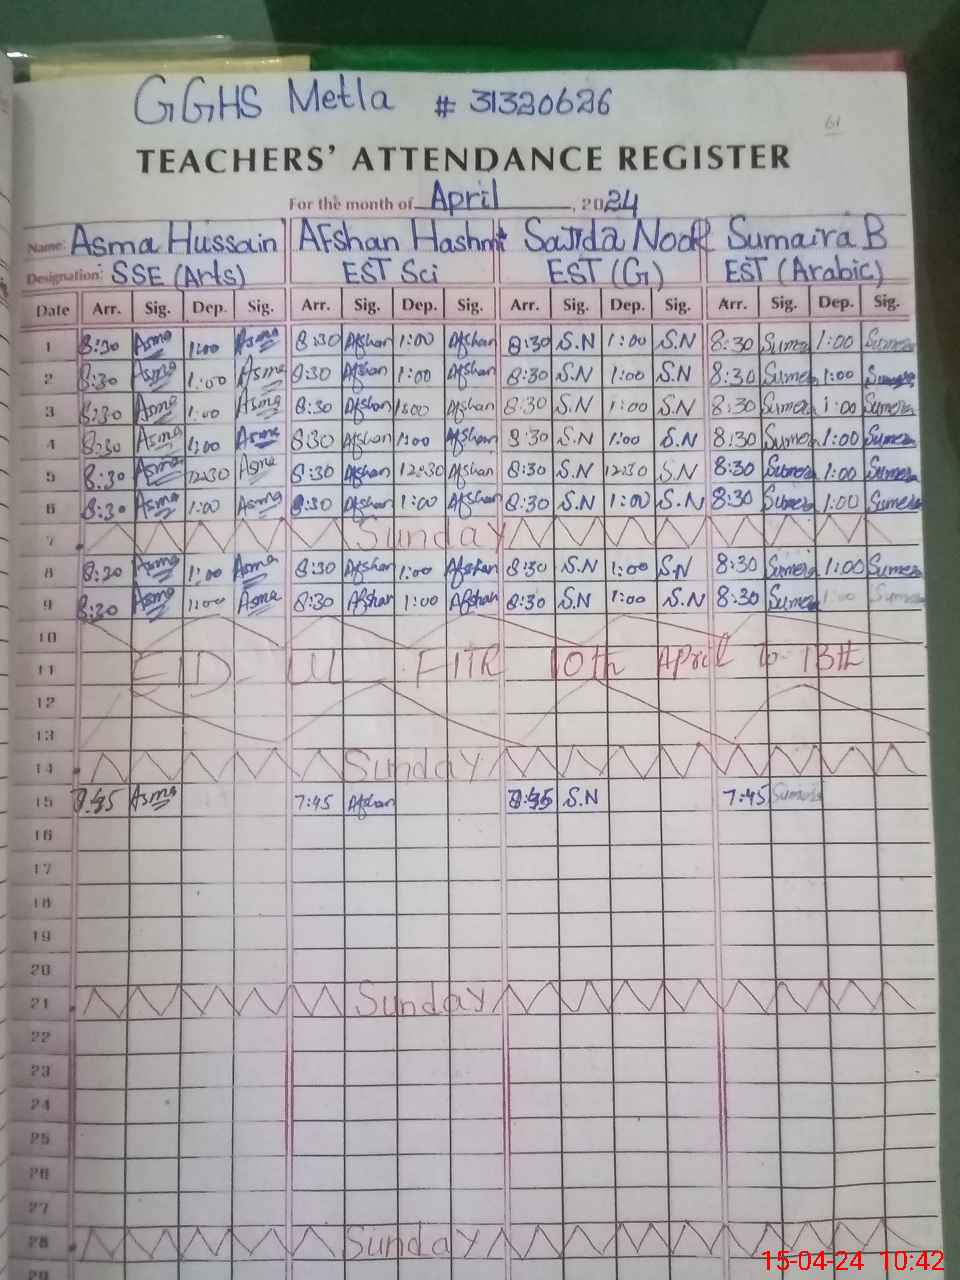 GGHS Metla # 31320626
61
TEACHERS' ATTENDANCE REGISTER
For the month of April, 2024
Name: Asma Hussain Afshan Hashmi Sajida Noor Sumaira B
Designation: SSE (Arts) EST Sci EST (G) EST (Arabic)
Date Arr. Sig. Dep. Sig. Arr. Sig. Dep. Sig. Arr. Sig. Dep. Sig. Arr. Sig. Dep. Sig.
1 8:30 Asma 1:00 Asma 8:30 Afshan 1:00 Afshan 8:30 S.N 1:00 S.N 8:30 Sumera 1:00 Sumera
2 8:30 Asma 1:00 Asma 8:30 Afshan 1:00 Afshan 8:30 S.N 1:00 S.N 8:30 Sumera 1:00 Sumera
3 8:30 Asma 1:00 Asma 8:30 Afshan 1:00 Afshan 8:30 S.N 1:00 S.N 8:30 Sumera 1:00 Sumera
4 8:30 Asma 1:00 Asma 8:30 Afshan 1:00 Afshan 8:30 S.N 1:00 S.N 8:30 Sumera 1:00 Sumera
5 8:30 Asma 12:30 Asma 8:30 Afshan 12:30 Afshan 8:30 S.N 12:30 S.N 8:30 Sumera 1:00 Sumera
6 8:30 Asma 1:00 Asma 8:30 Afshan 1:00 Afshan 8:30 S.N 1:00 S.N 8:30 Sumera 1:00 Sumera
7 Sunday
8 8:30 Asma 1:00 Asma 8:30 Afshan 1:00 Afshan 8:30 S.N 1:00 S.N 8:30 Sumera 1:00 Sumera
9 8:30 Asma 1:00 Asma 8:30 Afshan 1:00 Afshan 8:30 S.N 1:00 S.N 8:30 Sumera 1:00 Sumera
10
11 EID UL FITR 10th April to 13th
12
13
14 Sunday
15 7:45 Asma 7:45 Afshan 7:45 S.N 7:45 Sumera
16
17
18
19
20
21 Sunday
22
23
24
25
26
27
28 Sunday
29
15-04-24 10:42